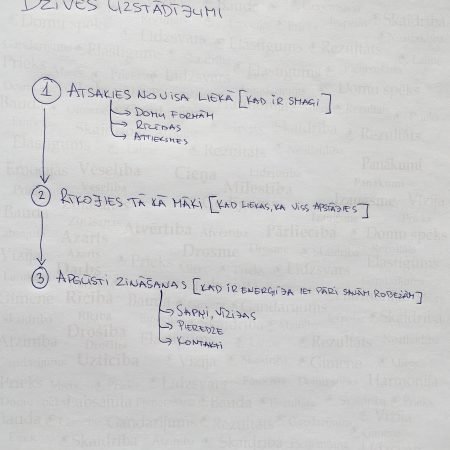 DZĪVES UZSTĀDĪJUMI
1 ATSAKIES NO VISA LIEKĀ [KAD IR SMAGI]
DOMU FORMĀM
RĪCĪBAS
ATTIEKSMES
2 RĪKOJIES TĀ KĀ MĀKI [KAD LIEKAS, KA VISS APSTĀJIES]
3 APGŪSTI ZINĀŠANAS [KAD IR ENERĢIJA IET PĀRI SAVĀM ROBEŽĀM]
SAPŅI, VĪZIJAS
PIEREDZE
KONTAKTI